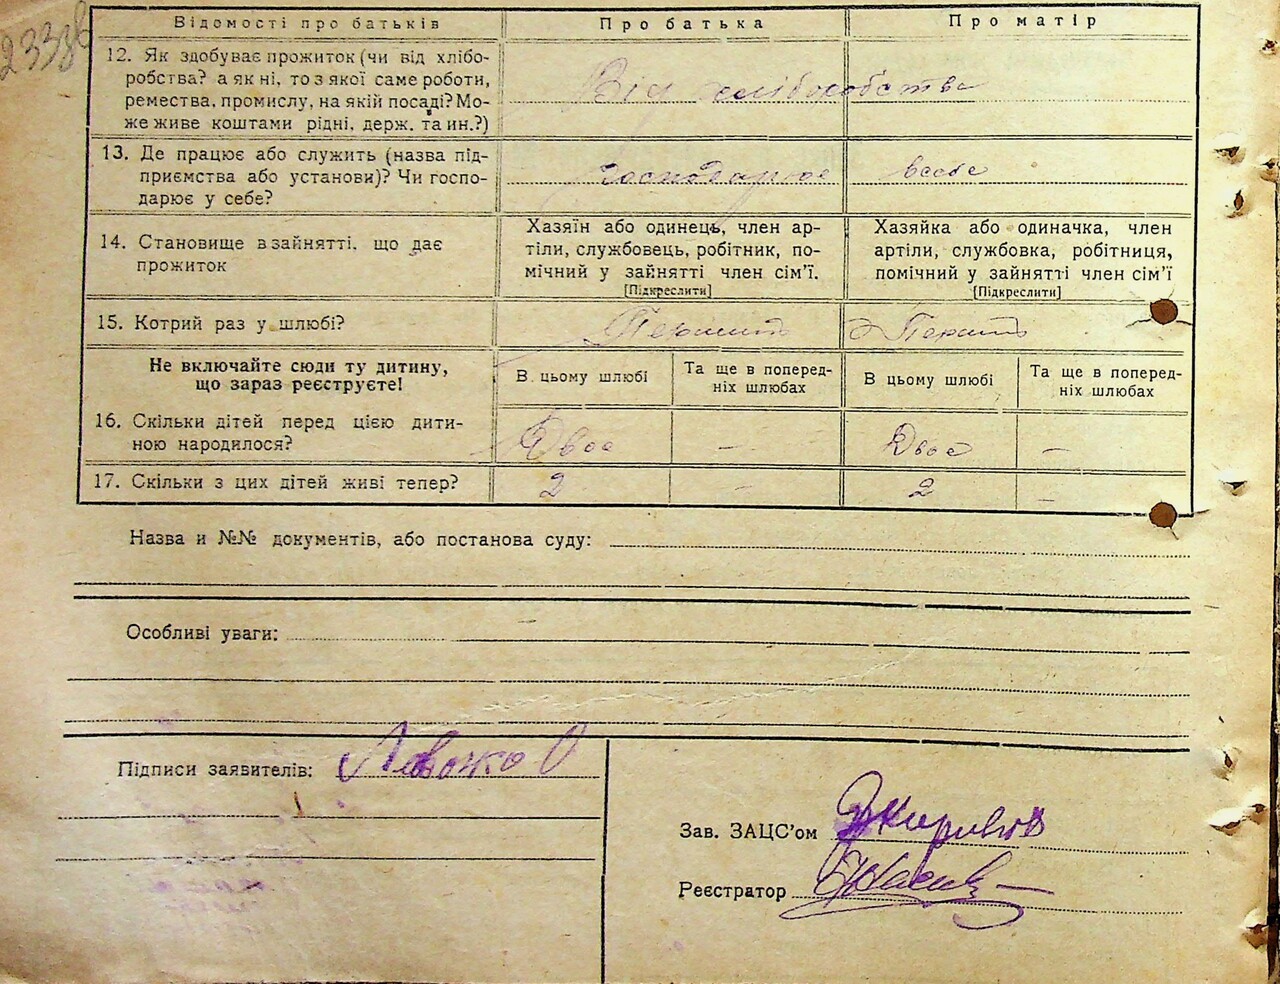 Відомості про батьків Про батька Про матір
12. Як здобуває прожиток (чи від хлібо-
робства? а як ні, то з якої саме роботи,
ремества, промислу, на якій посаді? Мо-
же живе коштами рідні, держ. та ин.?)
Від хліборобства
13. Де працює або служить (назва під-
приємства або установи)? Чи госпо-
дарює у себе?
господарює в себе
14. Становище в зайнятті. що дає
прожиток
Хазяїн або одинець, член ар-
тіли, службовець, робітник, по-
мічний у зайнятті член сім'ї.
[Підкреслити]
Хазяйка або одиначка, член
артіли, службовка, робітниця,
помічний у зайнятті член сім'ї
[Підкреслити]
15. Котрий раз у шлюбі?
Не включайте сюди ту дитину,
що зараз реєструєте!
В цьому шлюбі
Та ще в поперед-
ніх шлюбах
В цьому шлюбі
Та ще в поперед-
ніх шлюбах
16. Скільки дітей перед цією дити-
ною народилося?
Двоє – Двоє –
17. Скільки з цих дітей живі тепер? 2 – 2 –
Назва и №№ документів, або постанова суду:
Особливі уваги:
Підписи заявителів:
Зав. ЗАЦС'ом
Реєстратор